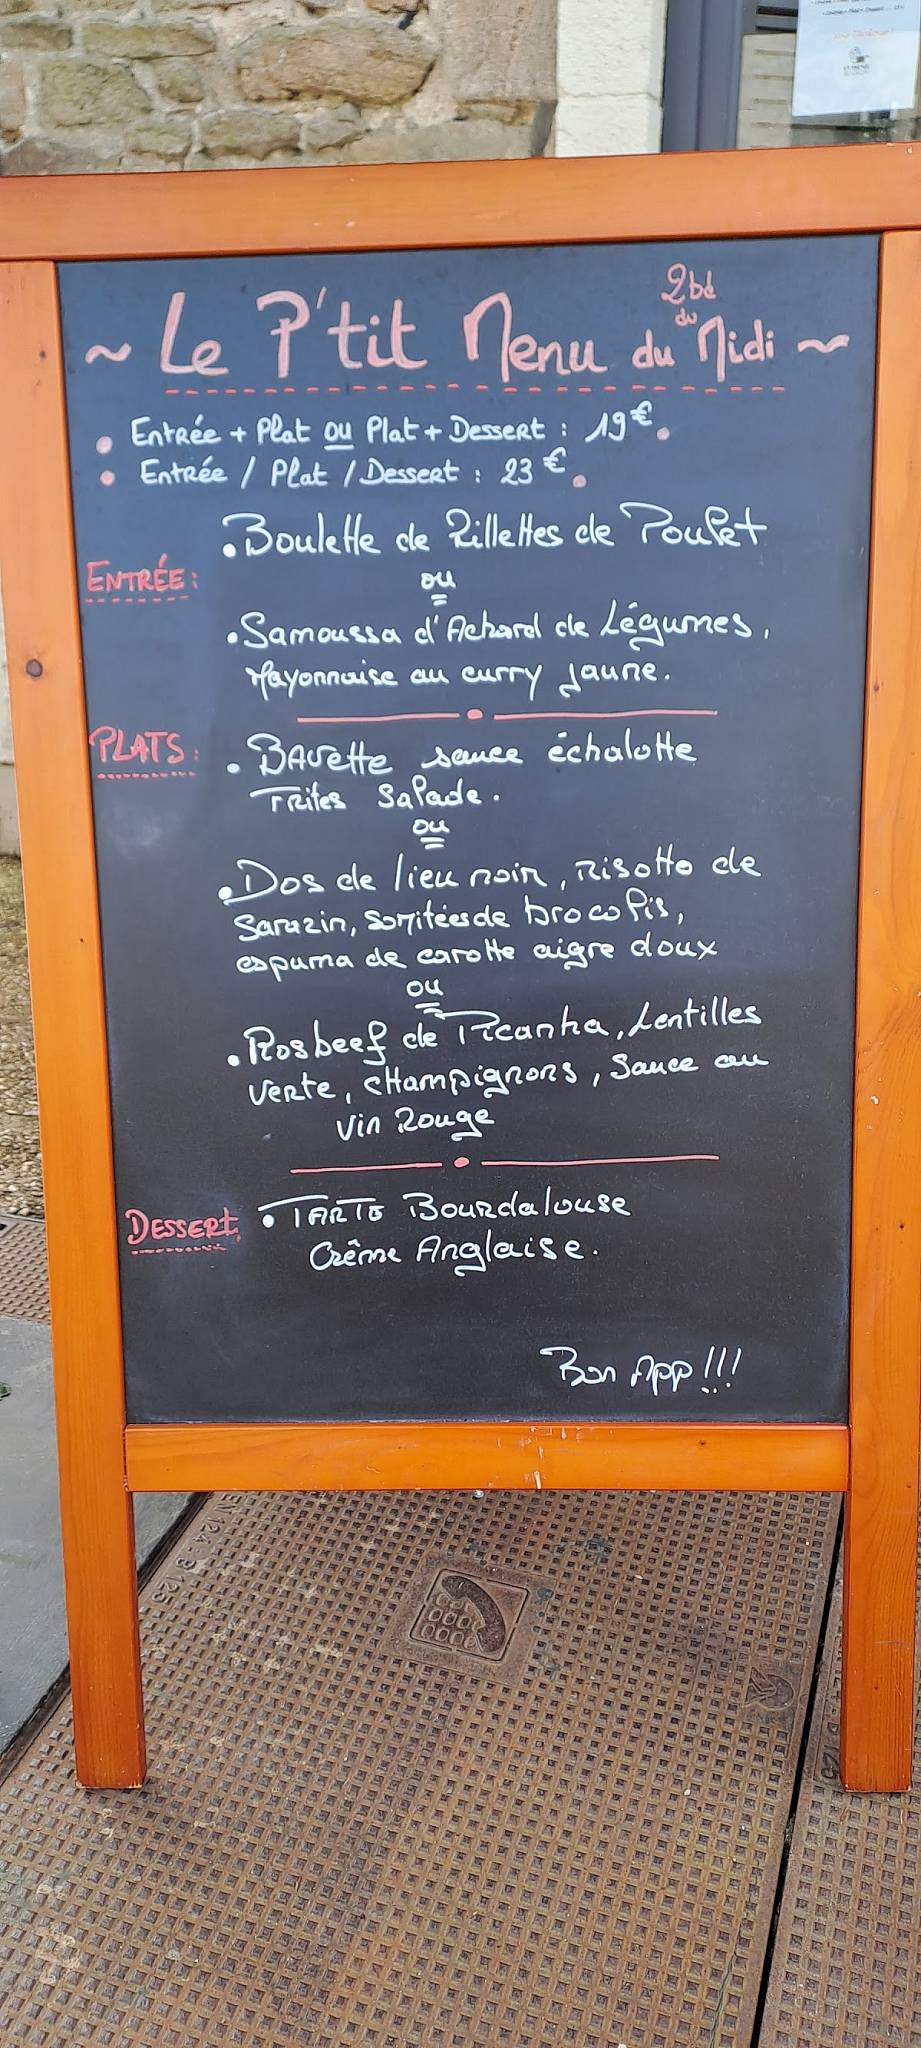 2bd
du
~ Le P'tit Menu du Midi ~
• Entrée + Plat ou Plat + Dessert : 19€.
• Entrée / Plat / Dessert : 23€.
ENTRÉE:
• Boulette de Rillettes de Poulet
ou
• Samoussa d'Achard de Légumes,
Mayonnaise au curry jaune.
PLATS:
• BAVette sauce échalotte
Frites Salade.
ou
• Dos de lieu noir, risotto de
Sarazin, somitées de brocolis,
espuma de carotte aigre doux
ou
• Rosbeef de Picanha, Lentilles
verte, champignons, sauce au
vin Rouge
DESSERT:
• TARTE Bourdalouse
Crême Anglaise.
Bon App !!!
EN 124 - B 125